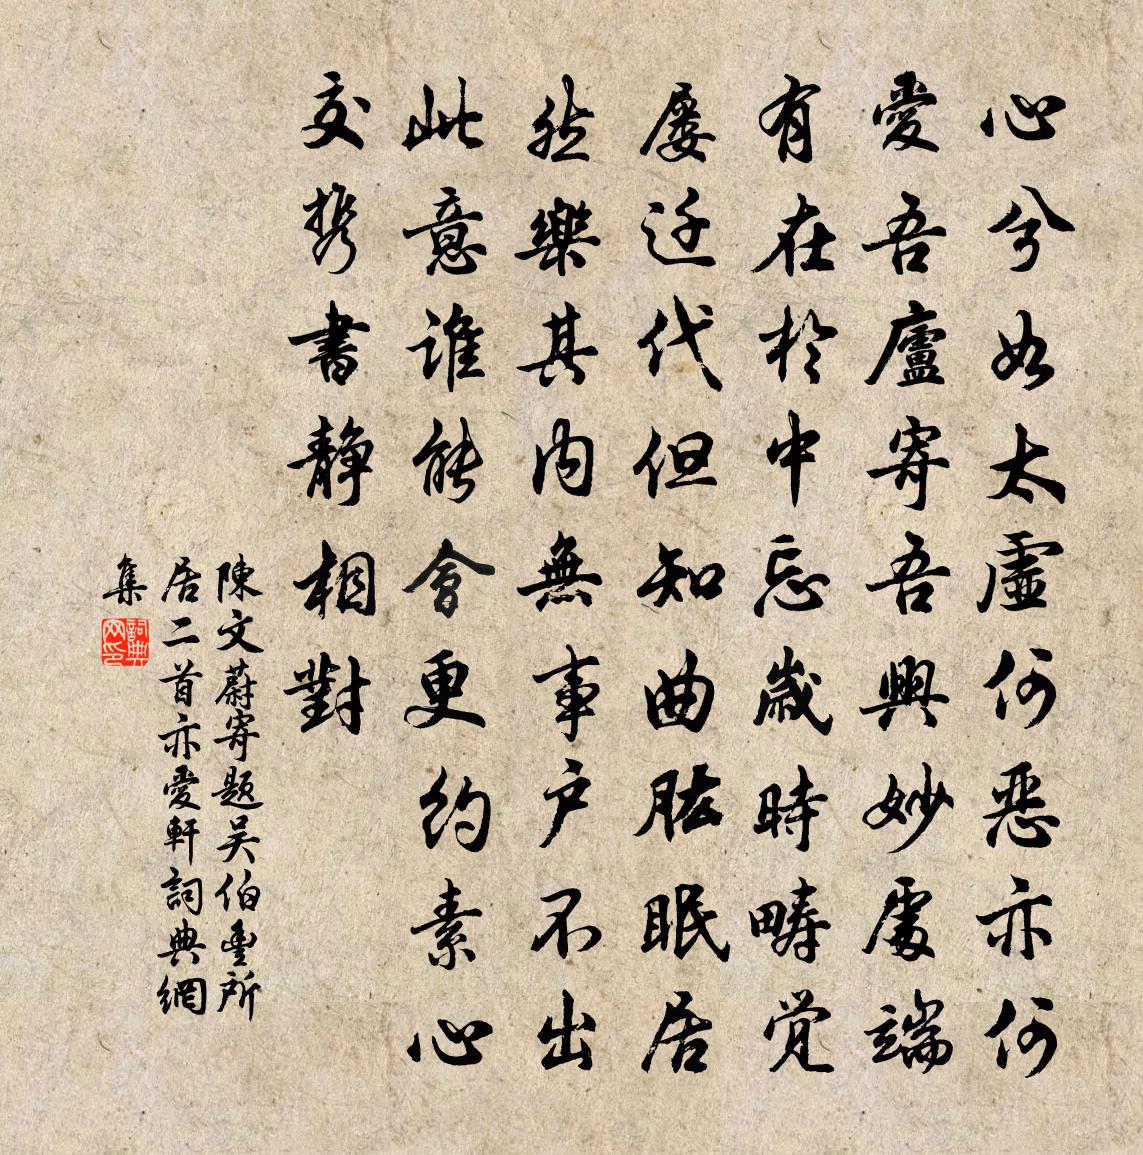 心兮如太虛何惡亦何
愛吾廬寄吾興妙處端
有在於中忘歲時疇覚
屡迁代但知曲肱眠居
然樂其内無事户不出
此意谁能會更约素心
交携書静相對
陳文蔚寄題吴伯豊所
居二首亦愛軒詞典網
集
詞典
网印